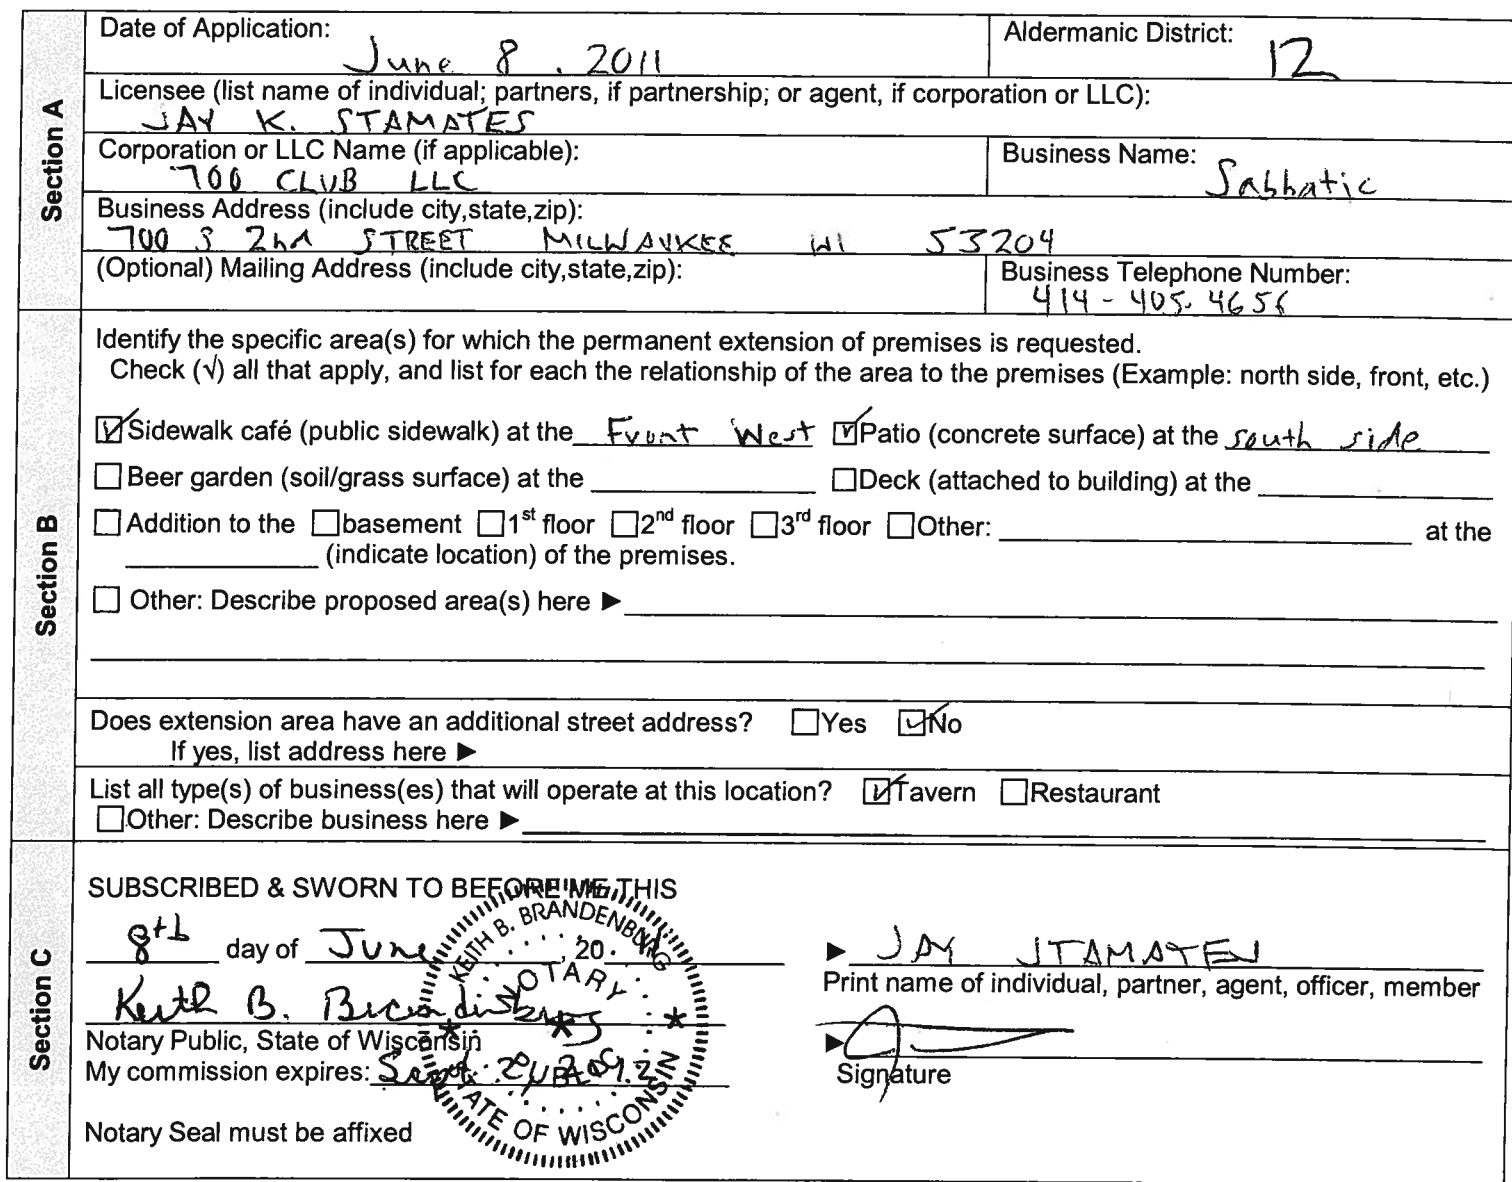 Section A
Date of Application: June 8, 2011
Aldermanic District: 12
Licensee (list name of individual; partners, if partnership; or agent, if corporation or LLC):
JAY K. STAMATES
Corporation or LLC Name (if applicable):
700 CLUB LLC
Business Name: Sabbatic
Business Address (include city,state,zip):
700 S 2nd STREET MILWAUKEE WI 53204
(Optional) Mailing Address (include city,state,zip):
Business Telephone Number:
414-405-4656
Section B
Identify the specific area(s) for which the permanent extension of premises is requested.
Check (√) all that apply, and list for each the relationship of the area to the premises (Example: north side, front, etc.)
☑Sidewalk café (public sidewalk) at the Front West ☑Patio (concrete surface) at the south side
☐Beer garden (soil/grass surface) at the ☐Deck (attached to building) at the
☐Addition to the ☐basement ☐1st floor ☐2nd floor ☐3rd floor ☐Other: at the
(indicate location) of the premises.
☐ Other: Describe proposed area(s) here ►
Does extension area have an additional street address? ☐Yes ☑No
If yes, list address here ►
List all type(s) of business(es) that will operate at this location? ☑Tavern ☐Restaurant
☐Other: Describe business here ►
Section C
SUBSCRIBED & SWORN TO BEFORE ME THIS
8th day of June, 20
Keith B. Brandenburg
Notary Public, State of Wisconsin
My commission expires: Sept. 2012
Notary Seal must be affixed
KEITH B. BRANDENBURG
NOTARY
PUBLIC
STATE OF WISCONSIN
► JAY STAMATES
Print name of individual, partner, agent, officer, member
►
Signature